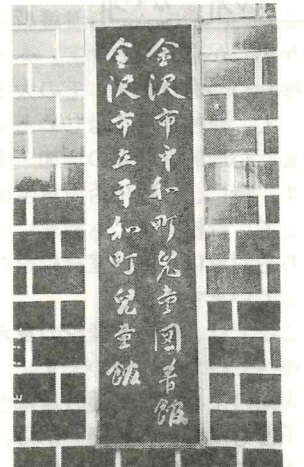 金沢市平和町児童図書館
金沢市立平和町児童館